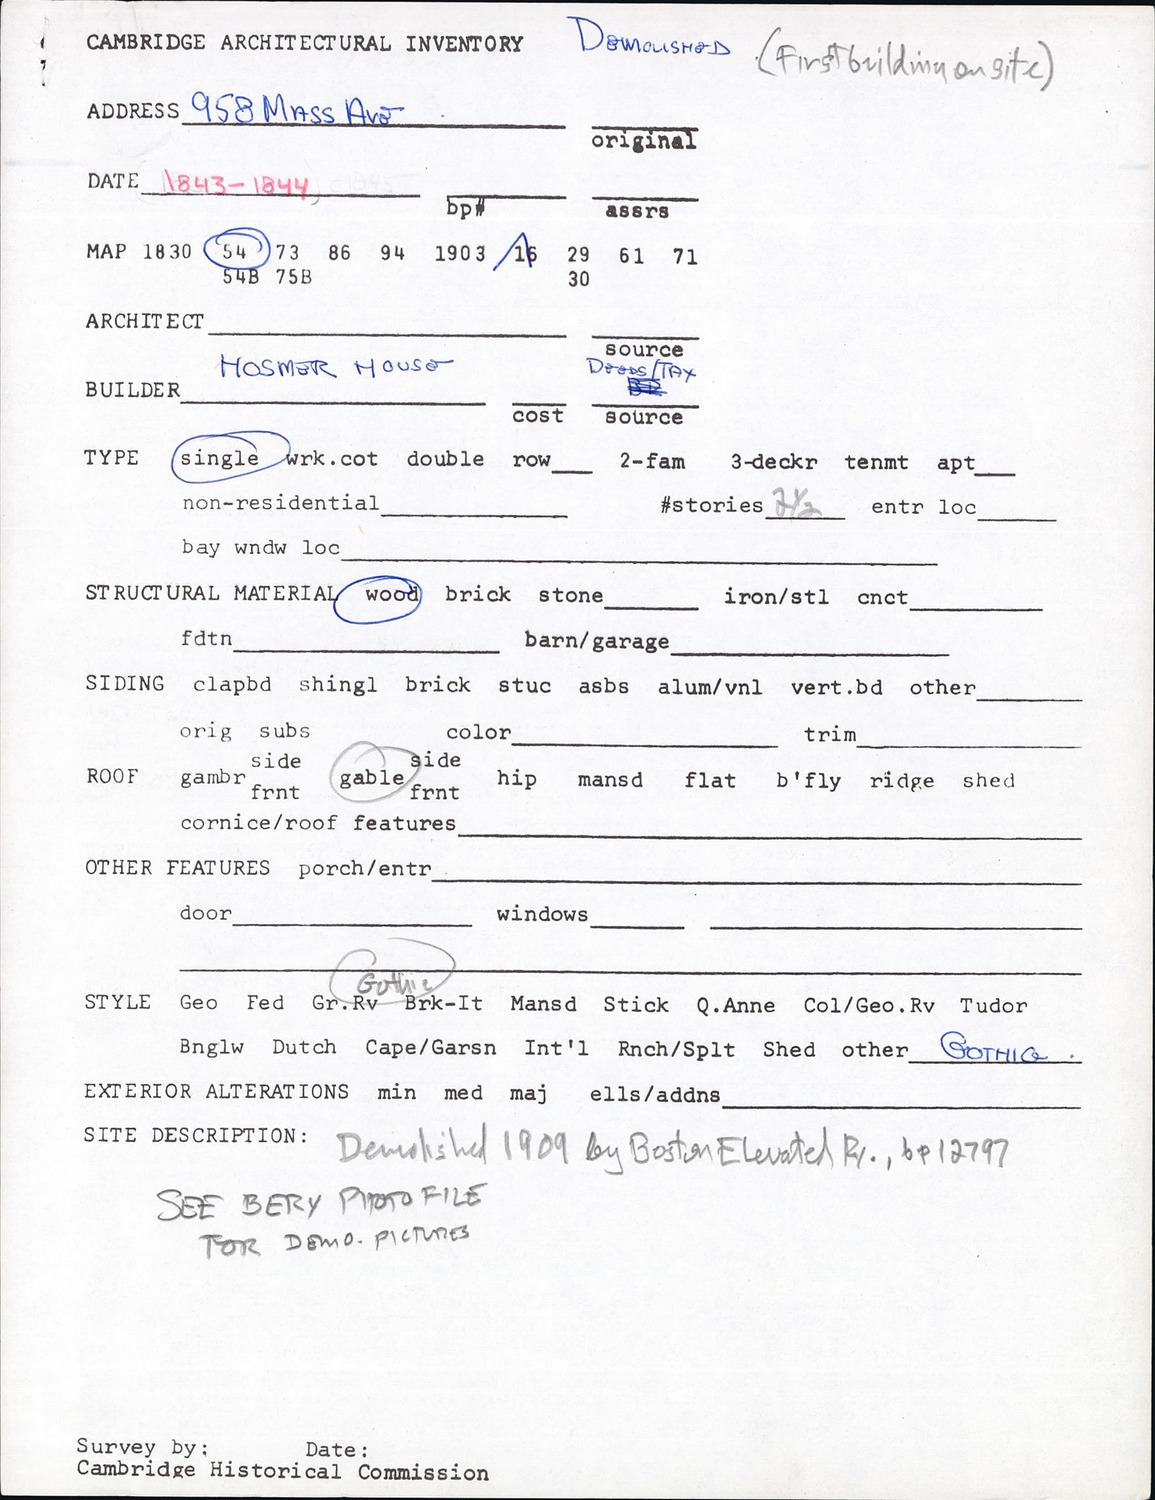 CAMBRIDGE ARCHITECTURAL INVENTORY Demolished (First building on site)
ADDRESS 958 Mass Ave
original
DATE 1843-1844
bp# assrs
MAP 1830 54 73 86 94 1903 16 29 61 71
54B 75B 30
ARCHITECT
source
Hosmer House Deeds/Tax
BUILDER
cost source
TYPE single wrk.cot double row 2-fam 3-deckr tenmt apt
non-residential #stories 2½ entr loc
bay wndw loc
STRUCTURAL MATERIAL wood brick stone iron/stl cnct
fdtn barn/garage
SIDING clapbd shingl brick stuc asbs alum/vnl vert.bd other
orig subs color trim
side side
ROOF gambr gable hip mansd flat b'fly ridge shed
frnt frnt
cornice/roof features
OTHER FEATURES porch/entr
door windows
Gothic
STYLE Geo Fed Gr.Rv Brk-It Mansd Stick Q.Anne Col/Geo.Rv Tudor
Bnglw Dutch Cape/Garsn Int'l Rnch/Splt Shed other Gothic
EXTERIOR ALTERATIONS min med maj ells/addns
SITE DESCRIPTION: Demolished 1909 by Boston Elevated Ry., bp 12797
SEE BERY PHOTO FILE
FOR DEMO. PICTURES
Survey by: Date:
Cambridge Historical Commission